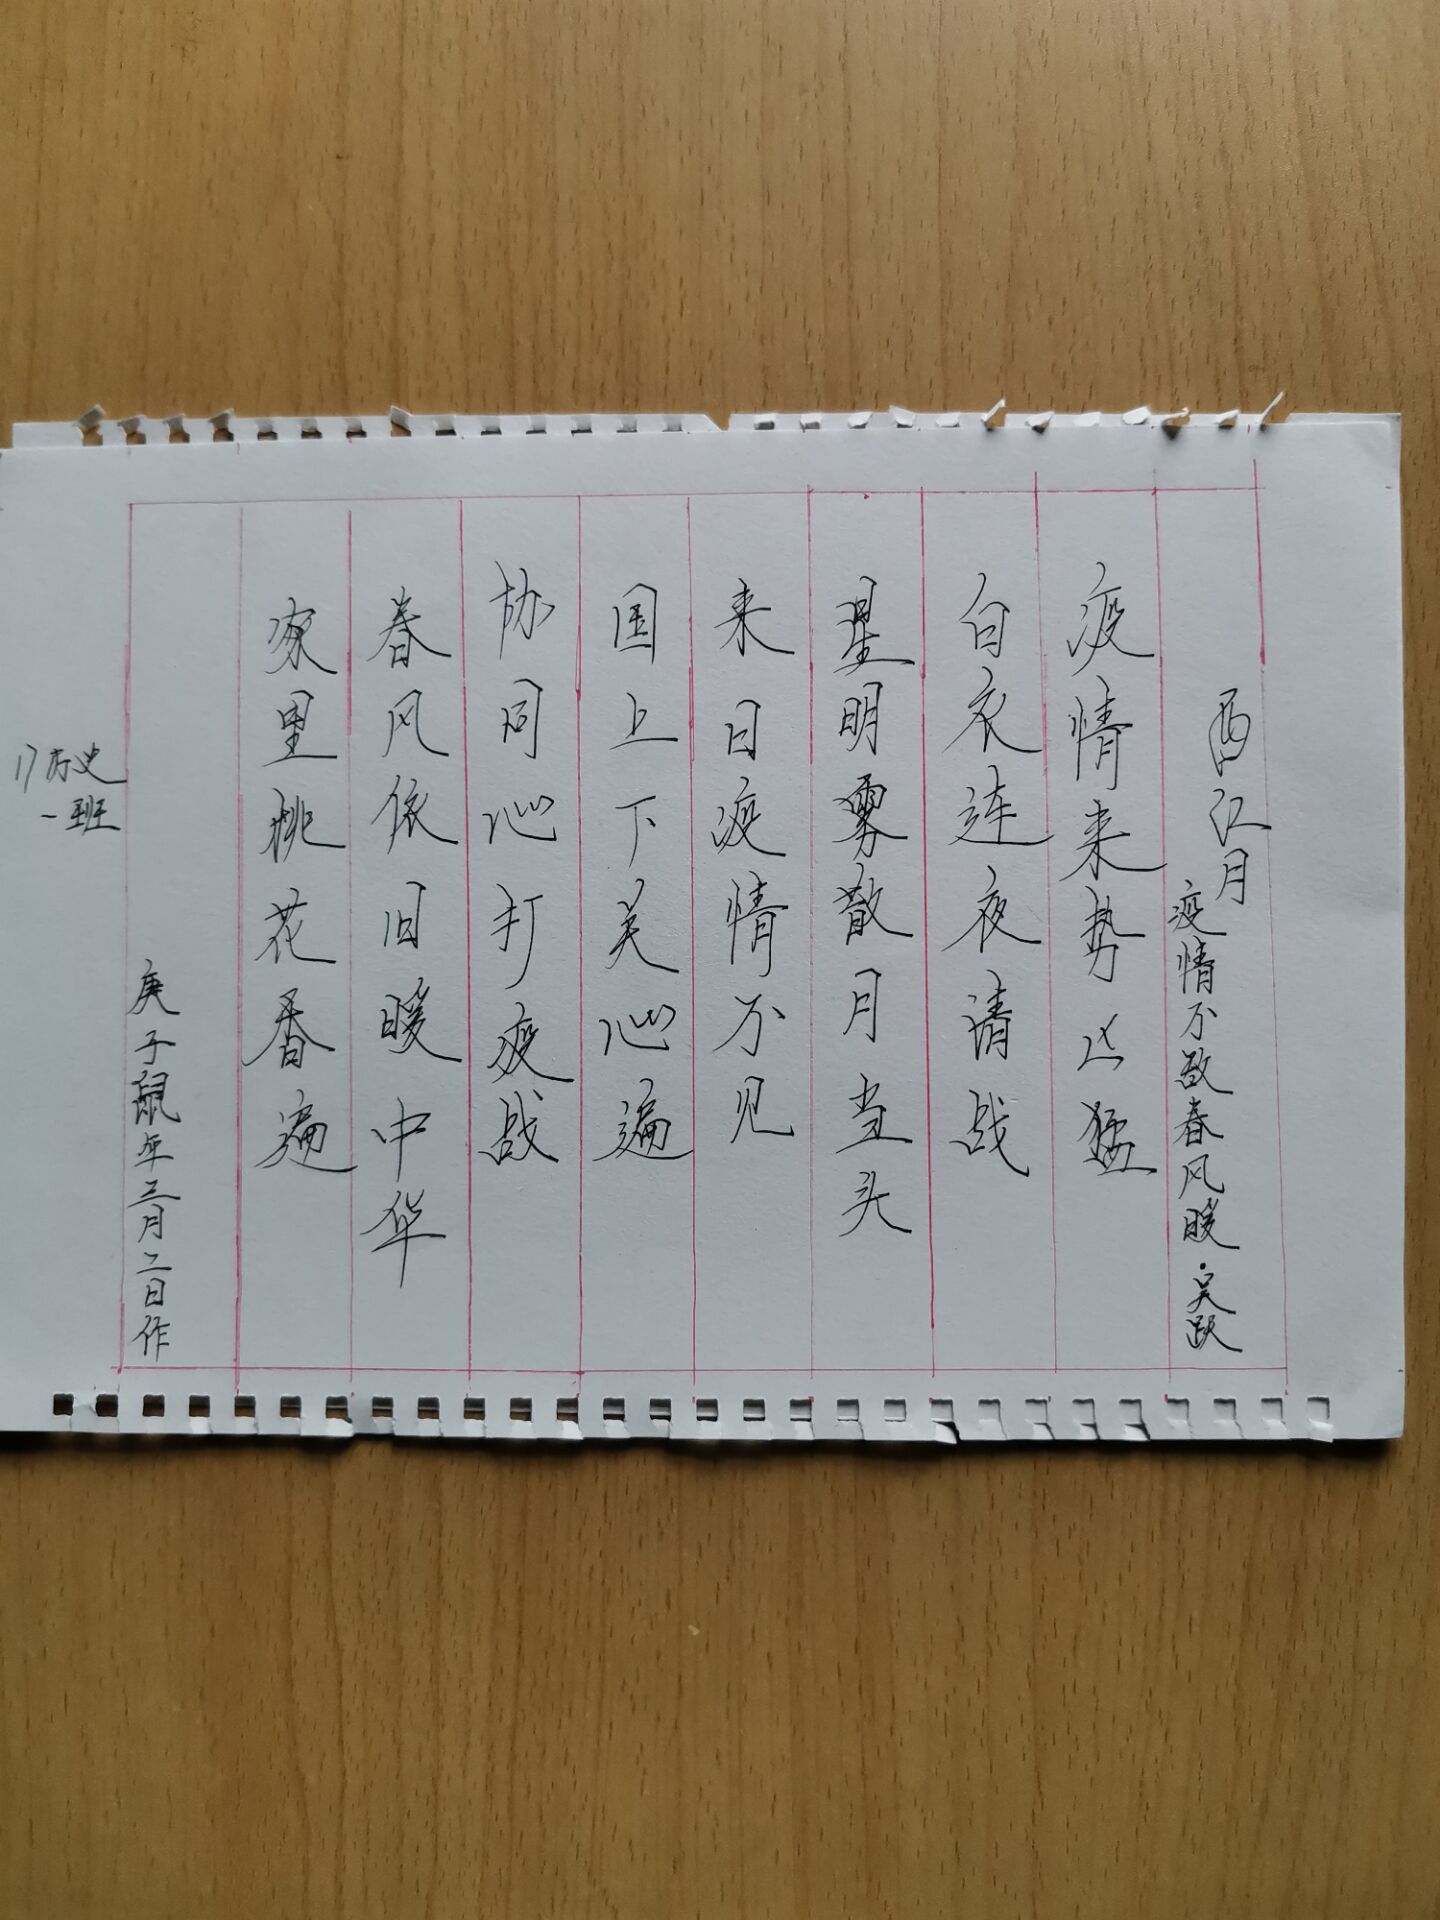 西江月
疫情不敌春风暖·吴跃
疫情来势凶猛
白衣连夜请战
星明雾散月当头
来日疫情不见
国上下关心遍
协同心打疫战
春风依旧暖中华
家里桃花香遍
庚子鼠年三月二日作
17历史
一班